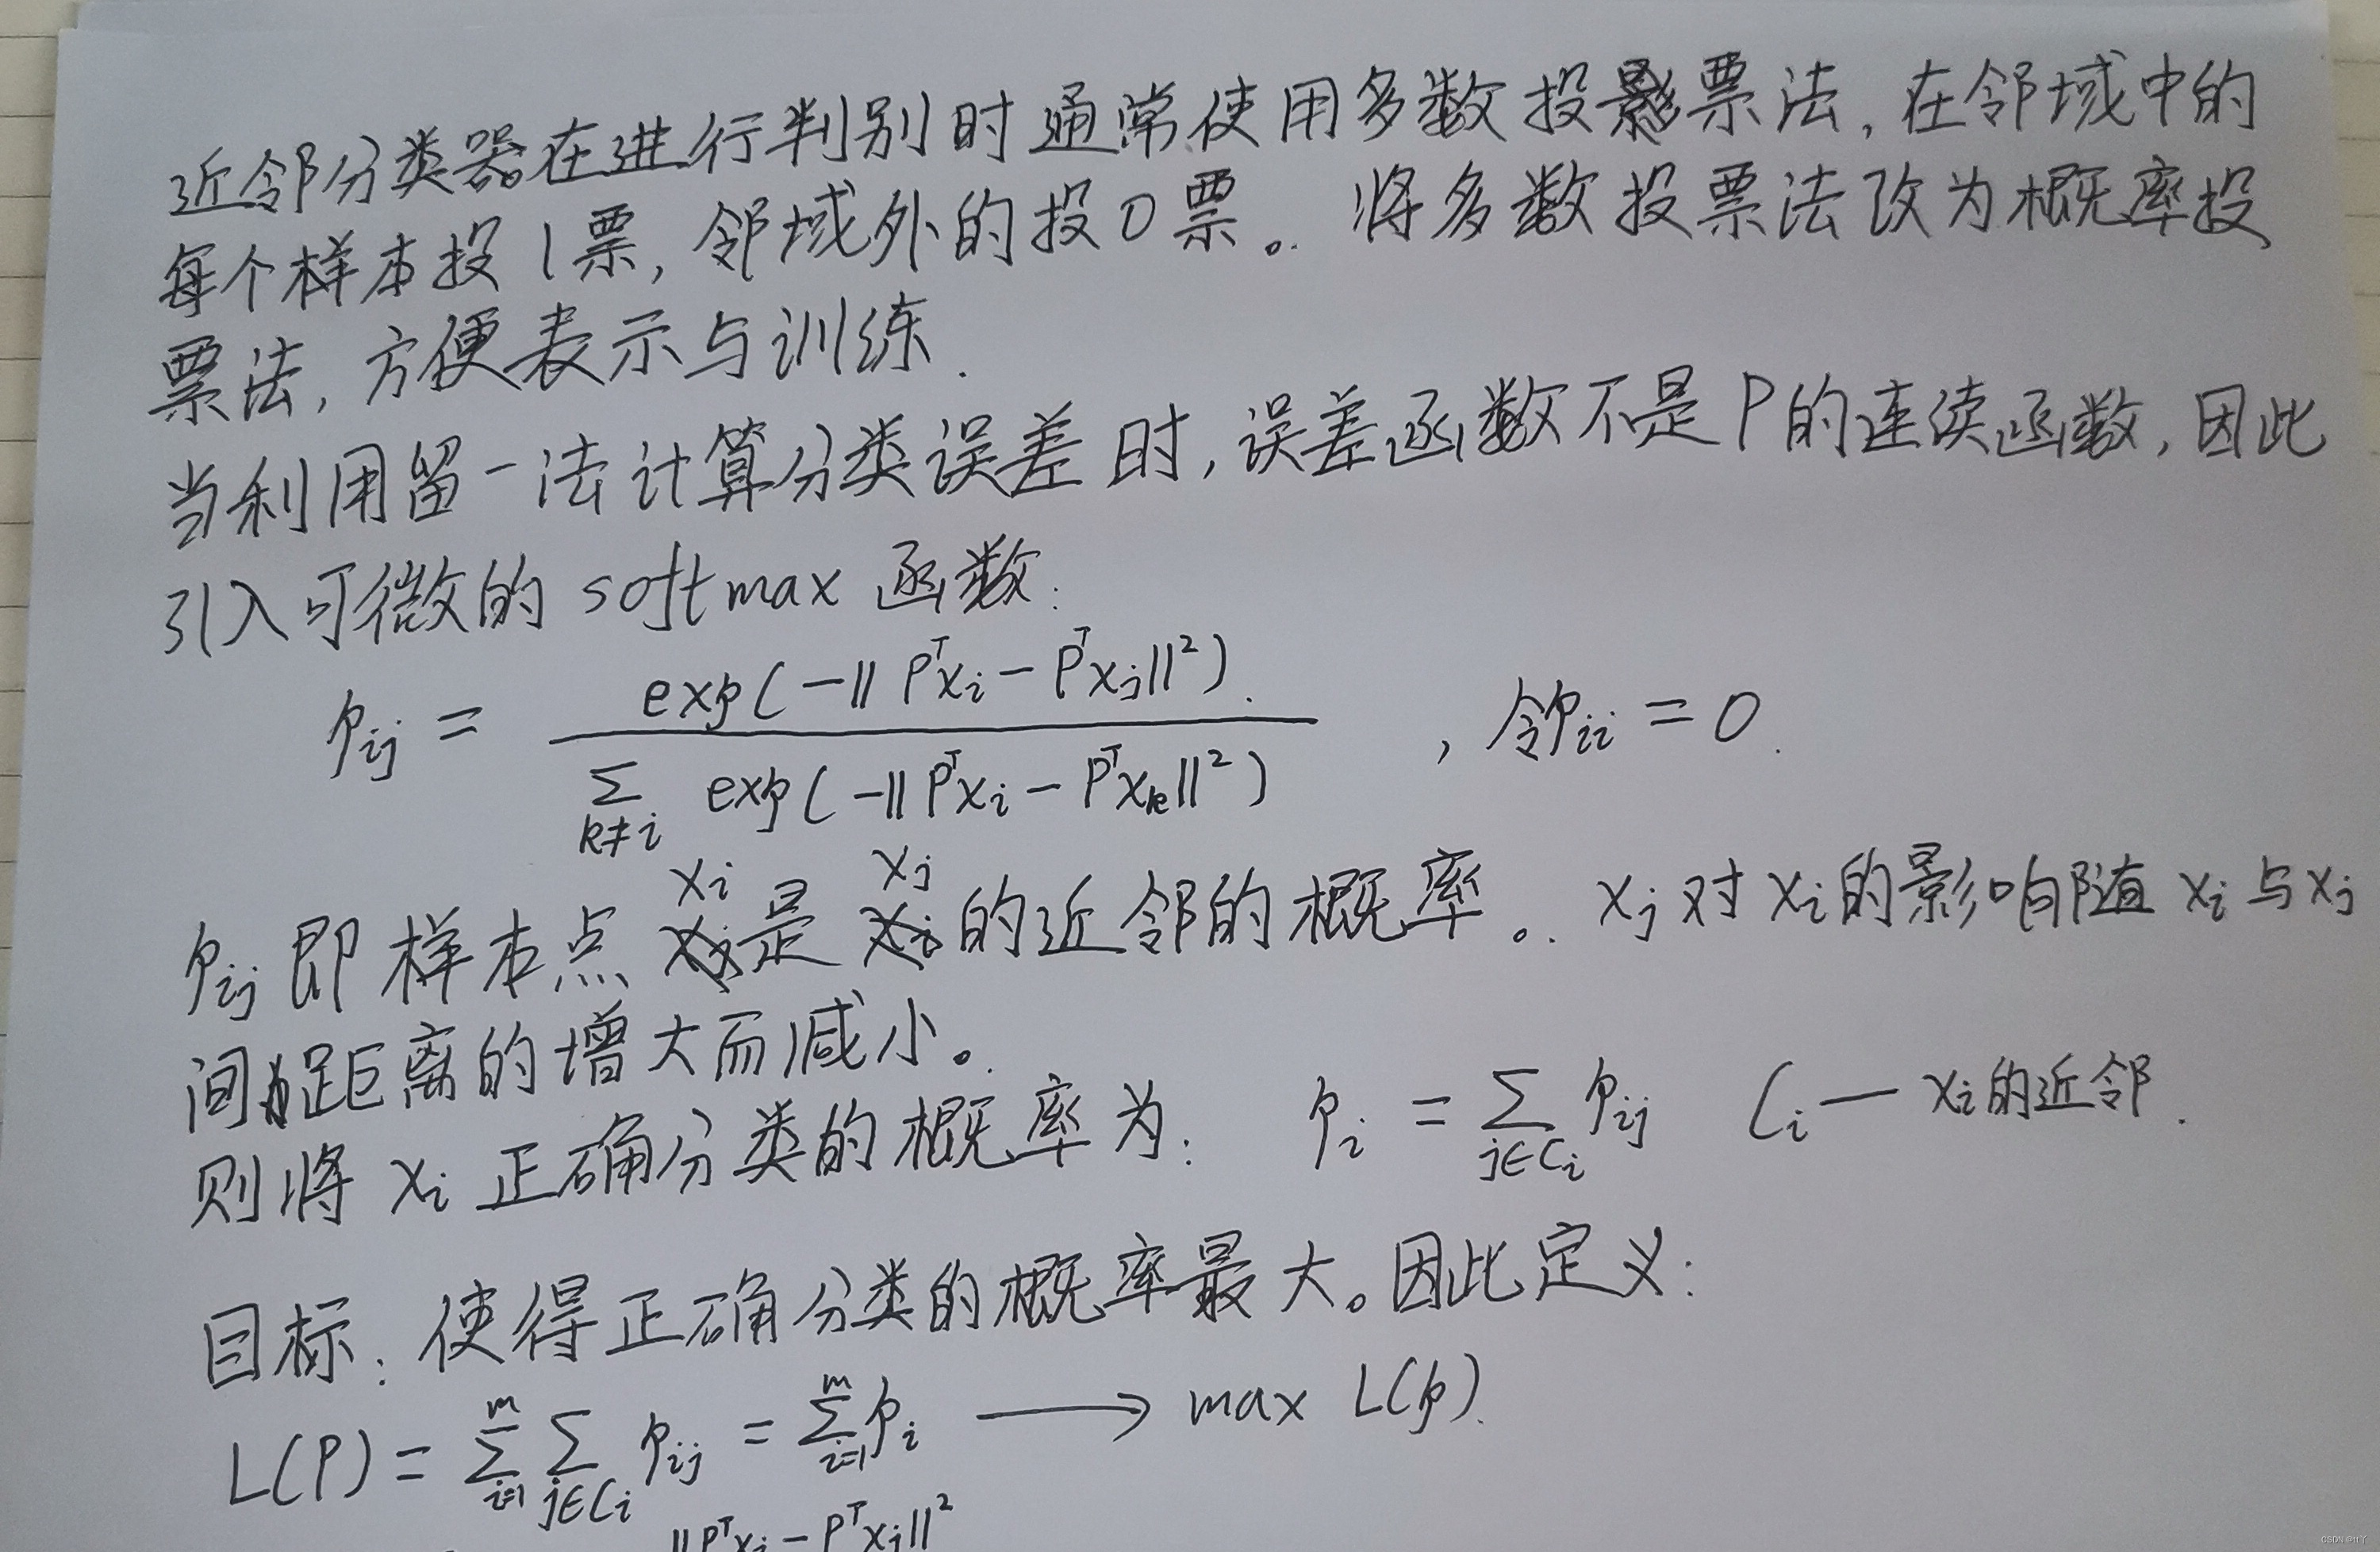 近邻分类器在进行判别时通常使用多数投票法,在邻域中的
每个样本投1票,邻域外的投0票。将多数投票法改为概率投
票法,方便表示与训练.
当利用留一法计算分类误差时,误差函数不是P的连续函数,因此
引入可微的 softmax 函数:
p_ij = exp(-||P^T x_i - P^T x_j||^2) / Σ_{k≠i} exp(-||P^T x_i - P^T x_k||^2) , 令p_ii = 0.
p_ij 即样本点 x_i 是 x_j 的近邻的概率。x_j 对 x_i 的影响随 x_i 与 x_j
间距离的增大而减小。
则将 x_i 正确分类的概率为: p_i = Σ_{j∈C_i} p_ij C_i — x_i的近邻.
目标: 使得正确分类的概率最大。因此定义:
L(P) = Σ_{i=1}^m Σ_{j∈C_i} p_ij = Σ_{i=1}^m p_i ⟶ max L(p).
||P^T x_i - P^T x_j||^2